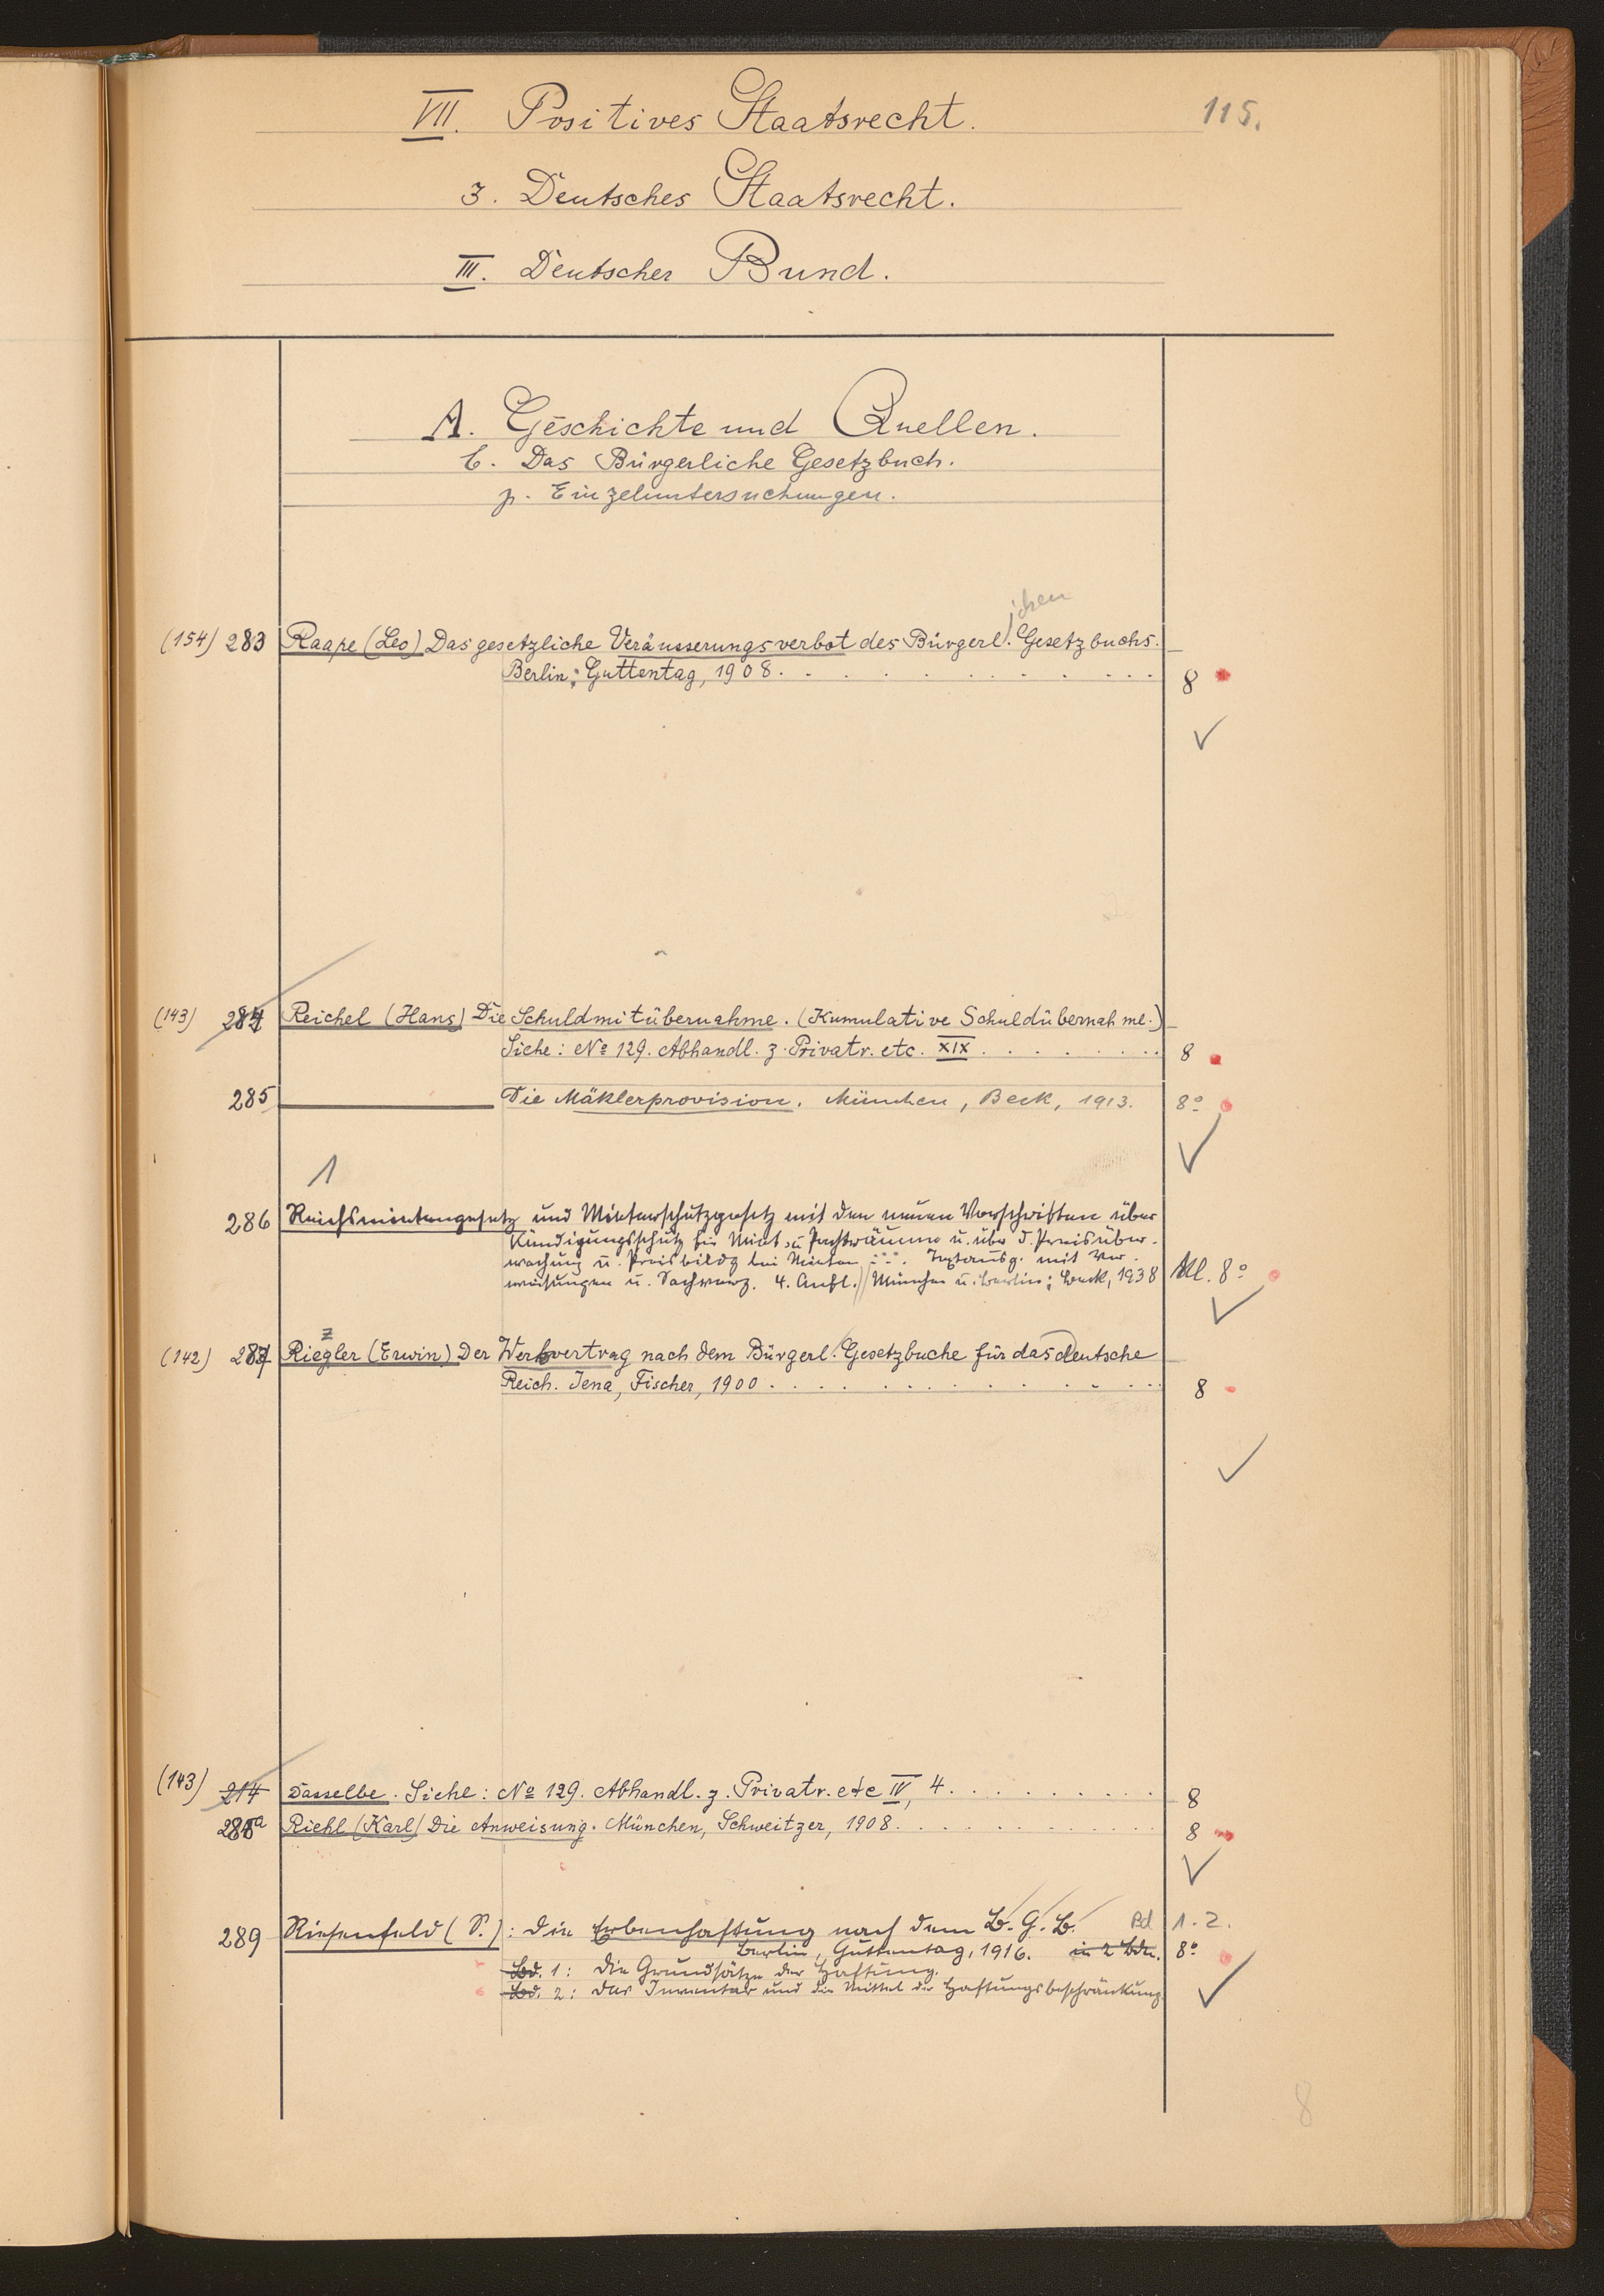 115.
VII. Positives Staatsrecht.
3. Deutsches Staatsrecht.
III. Deutscher Bund.
A. Geschichte und Quellen.
b. Das Bürgerliche Gesetzbuch.
γ. Einzeluntersuchungen.
ichen
(154) 283 Raape (Leo) Das gesetzliche Veräusserungsverbot des Bürgerl. Gesetzbuchs.
Berlin; Guttentag, 1908. 8
(143) 284 Reichel (Hans) Die Schuldmitübernahme. (Kumulative Schuldübernahme.)
Siehe: No 129. Abhandl. z. Privatr. etc. XIX 8
285 Die Mäklerprovision. München, Beck, 1913. 8o
1
286 Reichsmietengesetz und Mieterschutzgesetz mit den neuen Vorschriften über
Kündigungsschutz für Miet- u. Pachträume u. über d. Preisüber-
wachung u. Preisbildg bei Mieten .... Textausg. mit Ver-
weisungen u. Sachverz. 4. Aufl. München u. Berlin: Beck, 1938 Kl. 8o
z
(142) 287 Riegler (Erwin) Der Werkvertrag nach dem Bürgerl. Gesetzbuche für das deutsche
Reich. Jena, Fischer, 1900 8
(143) 214 Dasselbe. Siehe: No 129. Abhandl. z. Privatr. etc IV, 4. 8
288a Riehl (Karl) Die Anweisung. München, Schweitzer, 1908. 8
289 Riesenfeld (S.): Die Erbenhaftung nach dem B.G.B. Bd 1.2.
Berlin, Guttentag, 1916. in 2 Bdn. 8o
Bd. 1: Die Grundsätze der Haftung.
Bd. 2: Das Inventar und die Mittel der Haftungsbeschränkung.
8